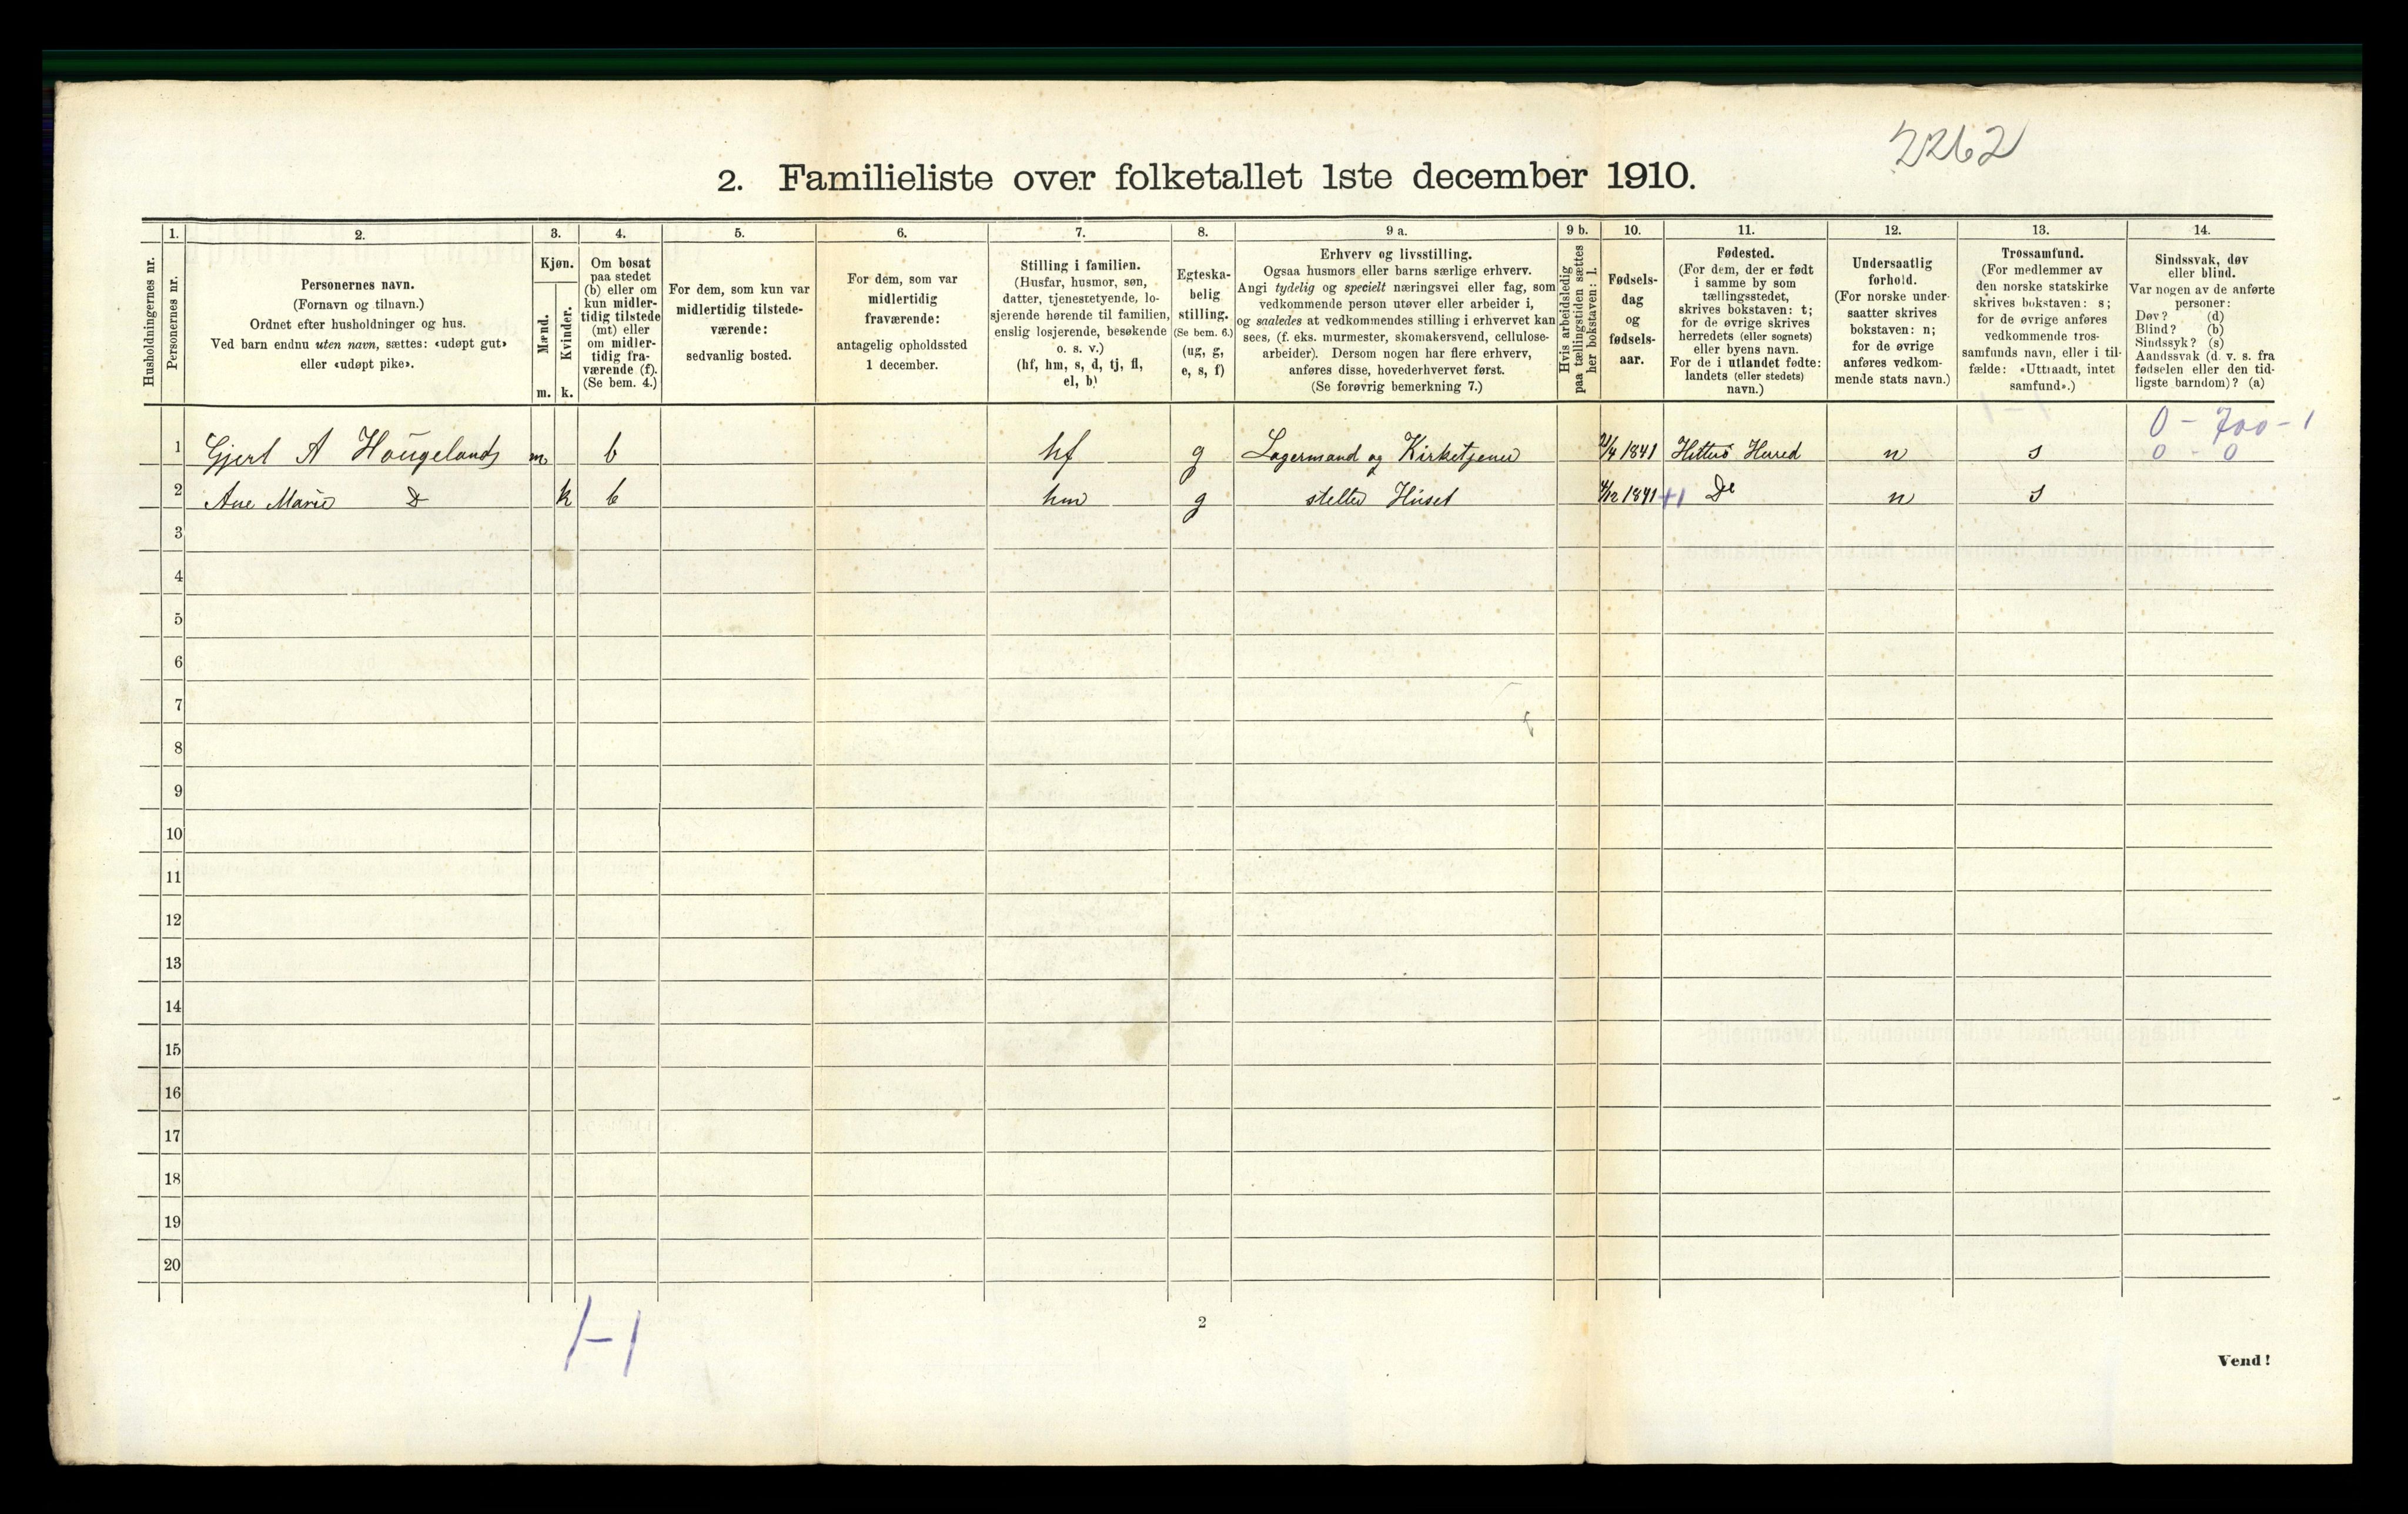 2262
2. Familieliste over folketallet 1ste december 1910.
Husholdningernes nr.
1.
Personernes nr.
2.
Personernes navn.
(Fornavn og tilnavn.)
Ordnet efter husholdninger og hus.
Ved barn endnu uten navn, sættes: «udøpt gut»
eller «udøpt pike».
3.
Kjøn.
Mænd.
Kvinder.
m. k.
4.
Om bosat
paa stedet
(b) eller om
kun midler-
tidig tilstede
(mt) eller
om midler-
tidig fra-
værende (f).
(Se bem. 4.)
5.
For dem, som kun var
midlertidig tilstede-
værende:
sedvanlig bosted.
6.
For dem, som var
midlertidig
fraværende:
antagelig opholdssted
1 december.
7.
Stilling i familien.
(Husfar, husmor, søn,
datter, tjenestetyende, lo-
sjerende hørende til familien,
enslig losjerende, besøkende
o. s. v.)
(hf, hm, s, d, tj, fl,
el, b)
8.
Egteska-
belig
stilling.
(Se bem. 6.)
(ug, g,
e, s, f)
9 a.
Erhverv og livsstilling.
Ogsaa husmors eller barns særlige erhverv.
Angi tydelig og specielt næringsvei eller fag, som
vedkommende person utøver eller arbeider i,
og saaledes at vedkommendes stilling i erhvervet kan
sees, (f. eks. murmester, skomakersvend, cellulose-
arbeider). Dersom nogen har flere erhverv,
anføres disse, hovederhvervet først.
(Se forøvrig bemerkning 7.)
9 b.
Hvis arbeidsledig
paa tællingstiden sættes
her bokstaven: l.
10.
Fødsels-
dag
og
fødsels-
aar.
11.
Fødested.
(For dem, der er født
i samme by som
tællingsstedet,
skrives bokstaven: t;
for de øvrige skrives
herredets (eller sognets)
eller byens navn.
For de i utlandet fødte:
landets (eller stedets)
navn.)
12.
Undersaatlig
forhold.
(For norske under-
saatter skrives
bokstaven: n;
for de øvrige
anføres vedkom-
mende stats navn.)
13.
Trossamfund.
(For medlemmer av
den norske statskirke
skrives bokstaven: s;
for de øvrige anføres
vedkommende tros-
samfunds navn, eller i til-
fælde: «Uttraadt, intet
samfund».)
14.
Sindssvak, døv
eller blind.
Var nogen av de anførte
personer:
Døv? (d)
Blind? (b)
Sindssyk? (s)
Aandssvak (d. v. s. fra
fødselen eller den tid-
ligste barndom)? (a)
0 - 700 - 1
1 Gjert A Hougelands m b hf g Lagermand og Kirketjener 1841 Hitterø Herred n s 0 - 0
2 Ane Marie D k b hm g steller Huset 4/12 1841 +1 Do n s
3
4
5
6
7
8
9
10
11
12
13
14
15
16
17
18
19
20
1-1
2
Vend!